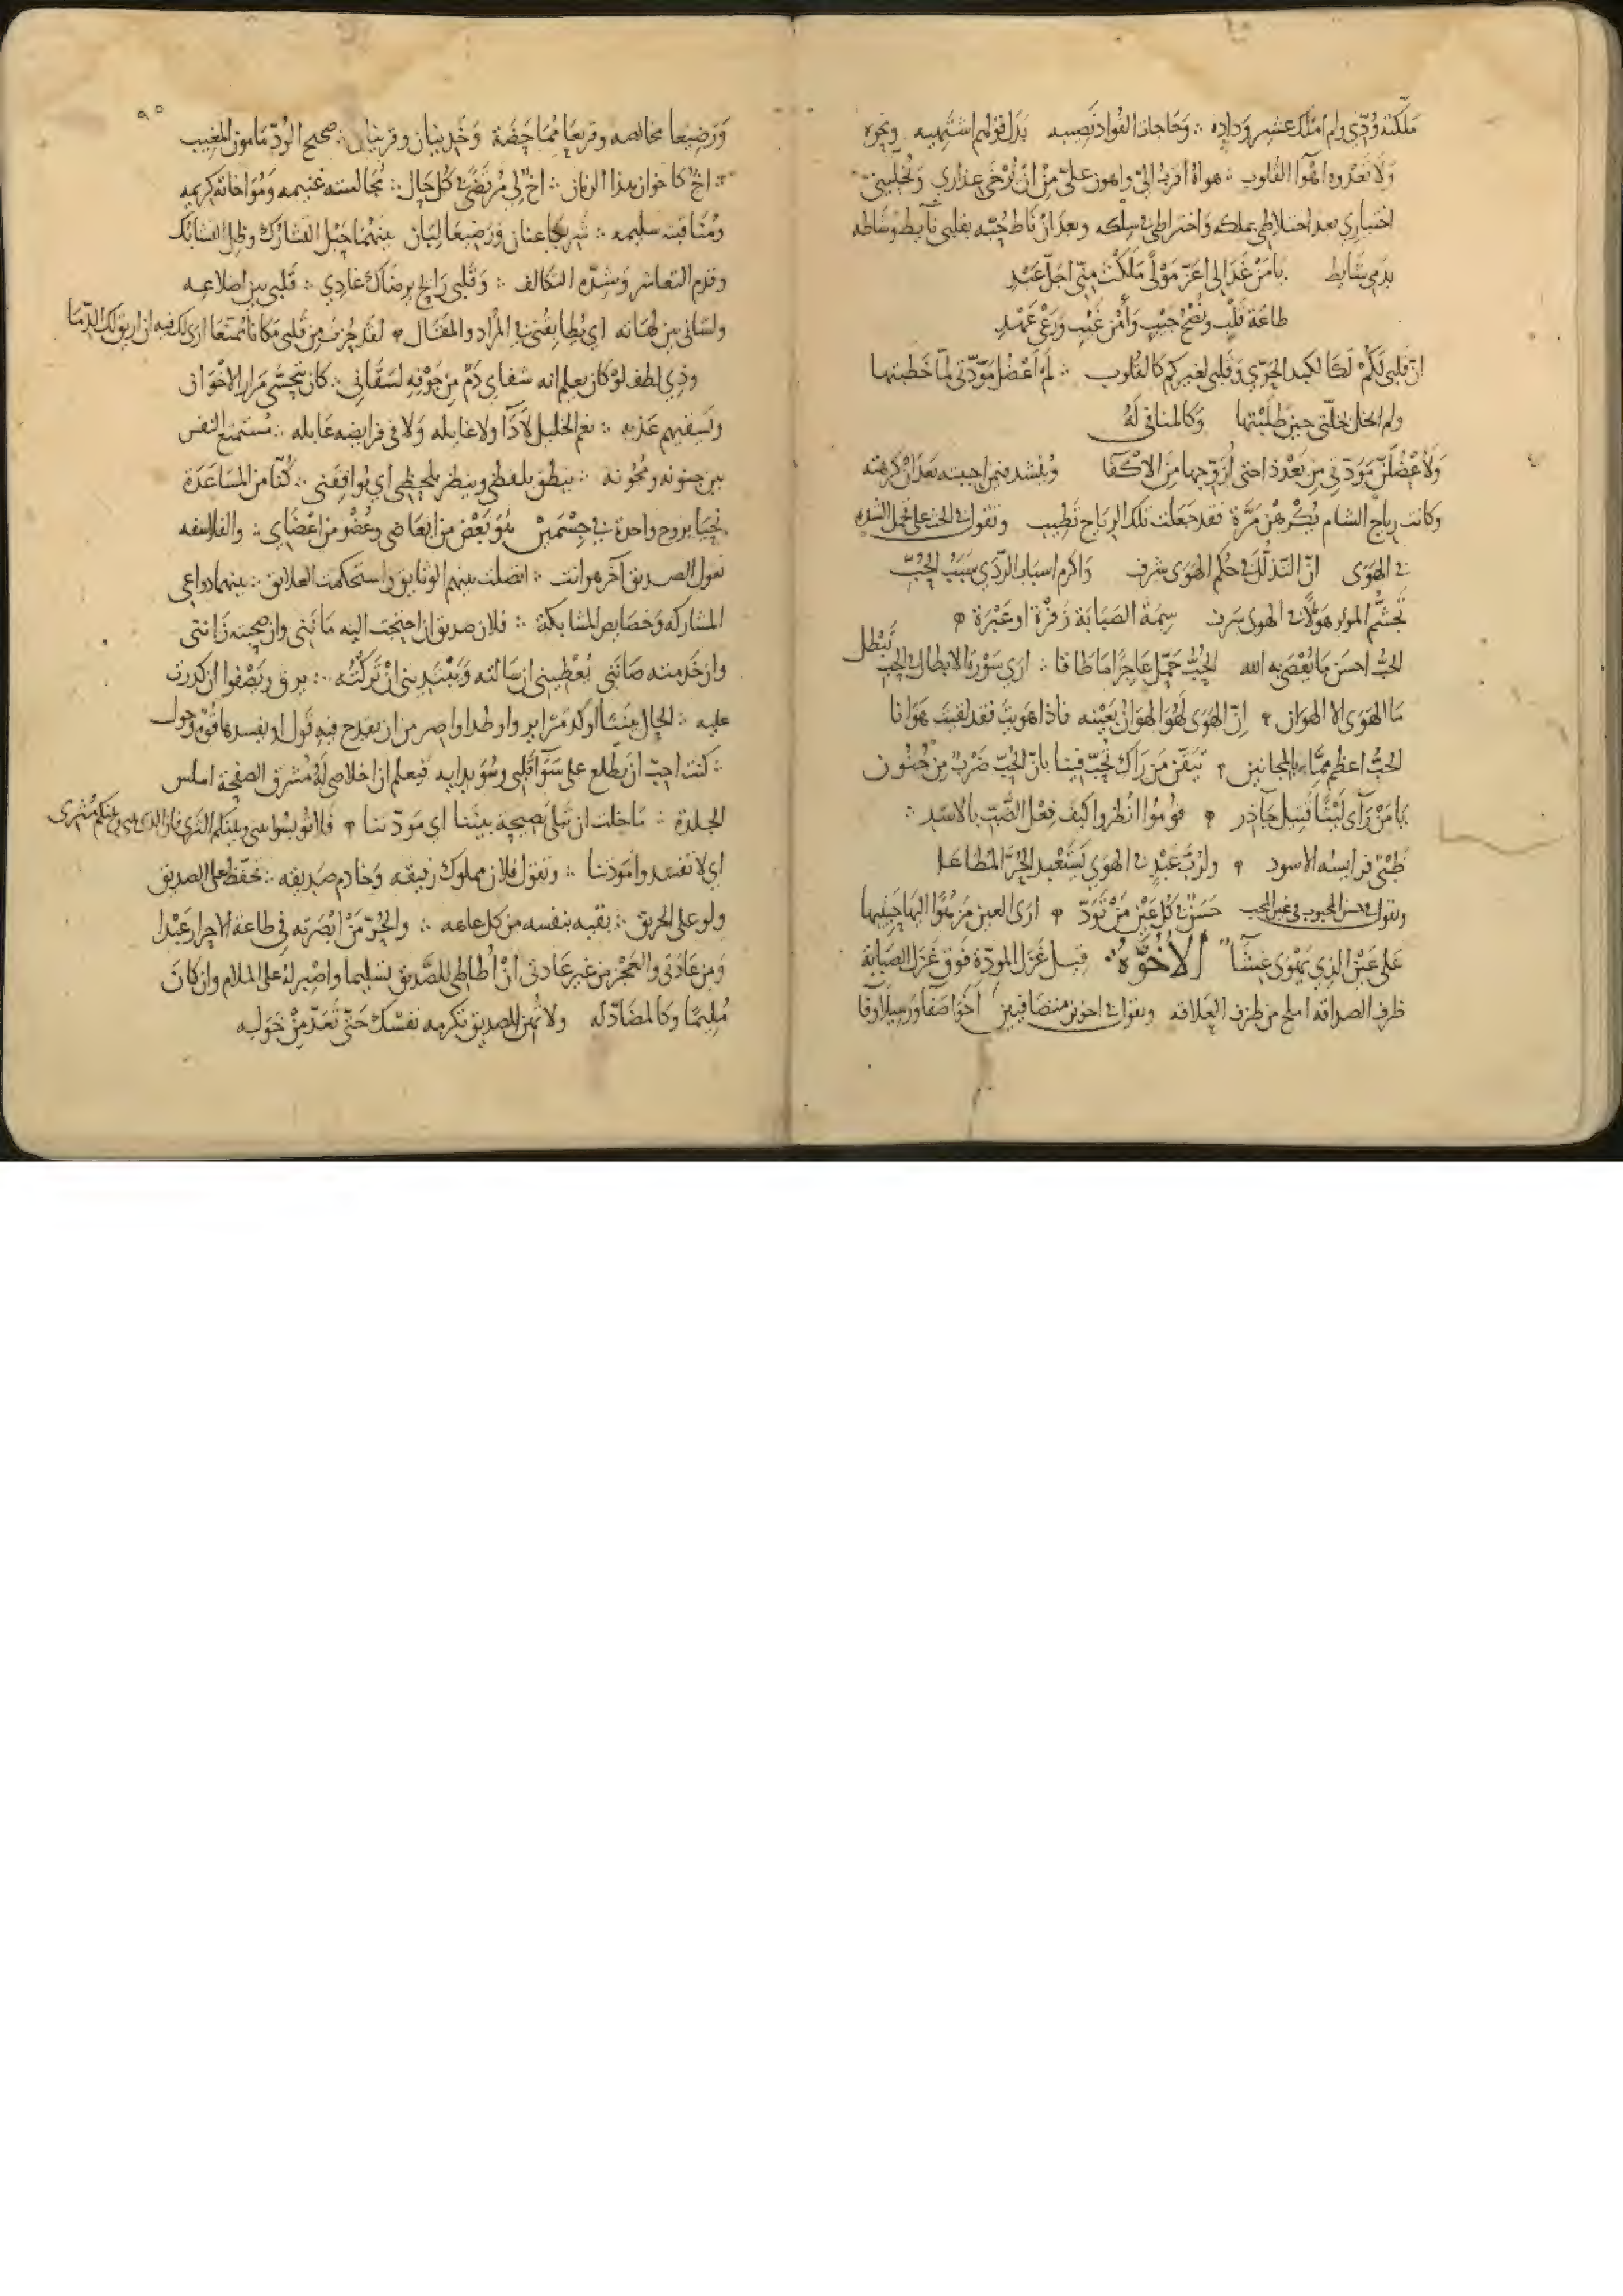 ملكته وُدّي ولم املك عشير وداده ∴ وحاجات الفواد نصيبه بدل قولهم اشتهيه ونحوه
وَلا تعدوه اهوآ القلوب ∴ هواهُ اقرب اليّ واهون عليّ مِنْ انْ يُرْخَى عذاري وتخليني
اختياري بعد اختلاطي بملكه وانخراطي في سلكه وبعد انْ ناط حُبّه بقلبي نآيط وشاطه
بدمي شايط يا مَنْ غَدَا لي اعَزّ مَوْلًى مَلكْتَ منّي اجَلّ عَبْدِ
طاعَة قَلْبٍ ونُصْحَ جيبٍ وَأمْن غَيْبٍ وَرَعْى عَهْدِ
انّ قلبي لكُمْ لكالكبد الحَرّي وَقلبي لغيركم كالقلوب ∴ لم اعْضُل مَوَدّتي لمّا خَطبتها
ولم اخل خلّتي حين طلَبْتها وَكالمنافى لَهُ
وَلأعْضُلَنّ مَوَدّتي مِن بَعْد ذا حتى أزَوّجها مِنَ الاكْفَا ويُنشد فيمن احببته بَعدَ انْ كرهته
وكانت رياح الشام تُكْرهُ مَرَّة فقد جَعَلت تلك الرياح تطيب وتقول في الحث على تحمل الشده
في الهَوَى انّ التذلُّلَ في حُكم الهَوَى شرف وَاكرم اسباب الرّدَي سَبَبُ الحُبِّ
تَجَشُّم الموارد هَوْلًا في الهوى سَرف سِمَة الصَبَابَة زَفْرة او عَبْرَة
الحبُّ احسَن مَا يُعْصَى به الله الحُبُّ حَمّل عَاجِزًا مَا طَاقا ∴ اري سَوْرة الابطال في الحب تَبْطل
مَا الهَوَى الا الهوان ∴ اِنّ الهَوَى لَهُوَ الهوَانُ بعَيْنه فاذا هَوِيتَ فقد لقيتَ هَوَانا
الحبُّ اعظم ممّا بالمجانين ∴ تيَقّن مَن رَآك تُحبّ فينا بانّ الحُبّ ضَرْبٌ مِنْ جُنُون
يَا مَنْ رَآى لَيْثًا قَتيل جَآذر ∴ قومُوا انْظروا كَيفَ فِعْل الضّبّ بالاسَد ∴
ظبْيٌ فرايسُه الاسود ∴ ولرُبّ عَبْدٍ في الهوَي يَسْتَعْبد الحُرَّ المُطاعَا
وتقول في حسن المحبوب في عين المحب حَسَنٌ في كلّ عَيْنٍ مَنْ تَوَدّ ∴ ارَى العين مَن تهوَا اليهَا حَبيبها
عَلى عَيْنِ الذي يَهْوَى غِشَآ الأُخُوَّةُ قيل غَزَل المودّة فَوق غَزَل الصَبابَة
ظرف الصداقه املح من ظرف العلاقه وتقول في اخوين متصافيين اَخَوَا صَفآ وَرَسيلا وفا
٩٥
وَرَضيعا مخالصه وقريعَا مُمَاحَضَة وَخَدينان وقرينان ∴ صحيح الوُدّ مَامون المغيب
∴ اخٌ كاخوان هذا الزمان ∴ اخٌ لي مُرتضًى في كُل حَال ∴ مُجَالسته غنيمه وَمُوَاخاته كريمه
ومُثافَنته سليمه ∴ شريكا عنان وَرَضيعَا لبَان بينهُما حَبْل التشارك وظل التشابك
وقدم التعاشر وَشدّه التكالف ∴ وَقلبي رَائح برضاك غادي ∴ قَلبي بين اضلاعه
ولسَاني بين لهَاته اي يُطابقُني في المُراد والمقال ∴ لقد حُزت مِن قَلبي مَكانًا مُمتّعَا ارى لك فيه ان اريق لك الدّمَا
وذي لطف لوْ كان يعلم انه شفاي دَمٌ مِن جَوْفِهِ لسَقاني ∴ كان يتحسّى مَرار الاخْوَان
وَيَسقيهم عَذبه ∴ نعم الخليل لا دَآا ولا غايله وَلا في فرايضه عايله ∴ مُستمتع النفس
بين جنونه ومُجُونه ∴ ينطق بلفظي وينظر بلحظي اي يُوافقني ∴ كُنّا من المُسَاعَدَة
نحيَا بروح واحدة في جِسْمَيْنِ هُوَ بَعْض من ابعَاضي وعُضْو من اعْضَاي ∴ والفلاسفه
تقول الصديق آخر هو انت ∴ اتصلت بينهم الوثايق واستحكمت العلايق ∴ بينهما دواعي
المشاركه وَخصَايص المشابكة ∴ فلان صديق ان احتجت اليه مَانَني وان صحبته زَانني
وان خدمته صَانني يُعْطيني ان سَالته وَيَبْتَديني انْ تَرَكْتُه ∴ يرق ويَصْفو ان كدرت
عليه ∴ الحال بينَنَا اوكد مَرَاير واوطد اواصر من ان يقدح فيه قَول او يفسدها قوّم وحول
∴ كنت احبّ انْ يطّلع على سَوَآ قَلبي وسُوَيدايه فيعلم ان اخلاصي لهُ مُشرق الصفحة املس
الجلدة ∴ مَا خلت ان تبْلَى نَصيحة بيننا اي مَودّتنا ∴ فلا تُوبسُوا بيني وبينكم الثرَى فان الذي بيني وبينكم مُثرى
اي لا تفسدوا مودتنا ∴ وتقول فلان مملوك رفيقه وَخادم صَديقه ∴ تحفّظ على الصديق
ولو على الحريق ∴ يقيه بنفسه من كل عاهه ∴ والحُرّ مَنْ ابْصَرته في طاعة الاحرار عَبْدا
وَمِن عَادَتى والعَجْز من غير عَادتي انْ اُطاطي للصَّديق تسَليما واصْبر لهُ على الملام وان كانَ
مُليمًا وكالمضَادّ لَه ولا تُهن للصديق تكرمه نفسَك حَتّى تُعَدّ مِنْ خَوَلِه